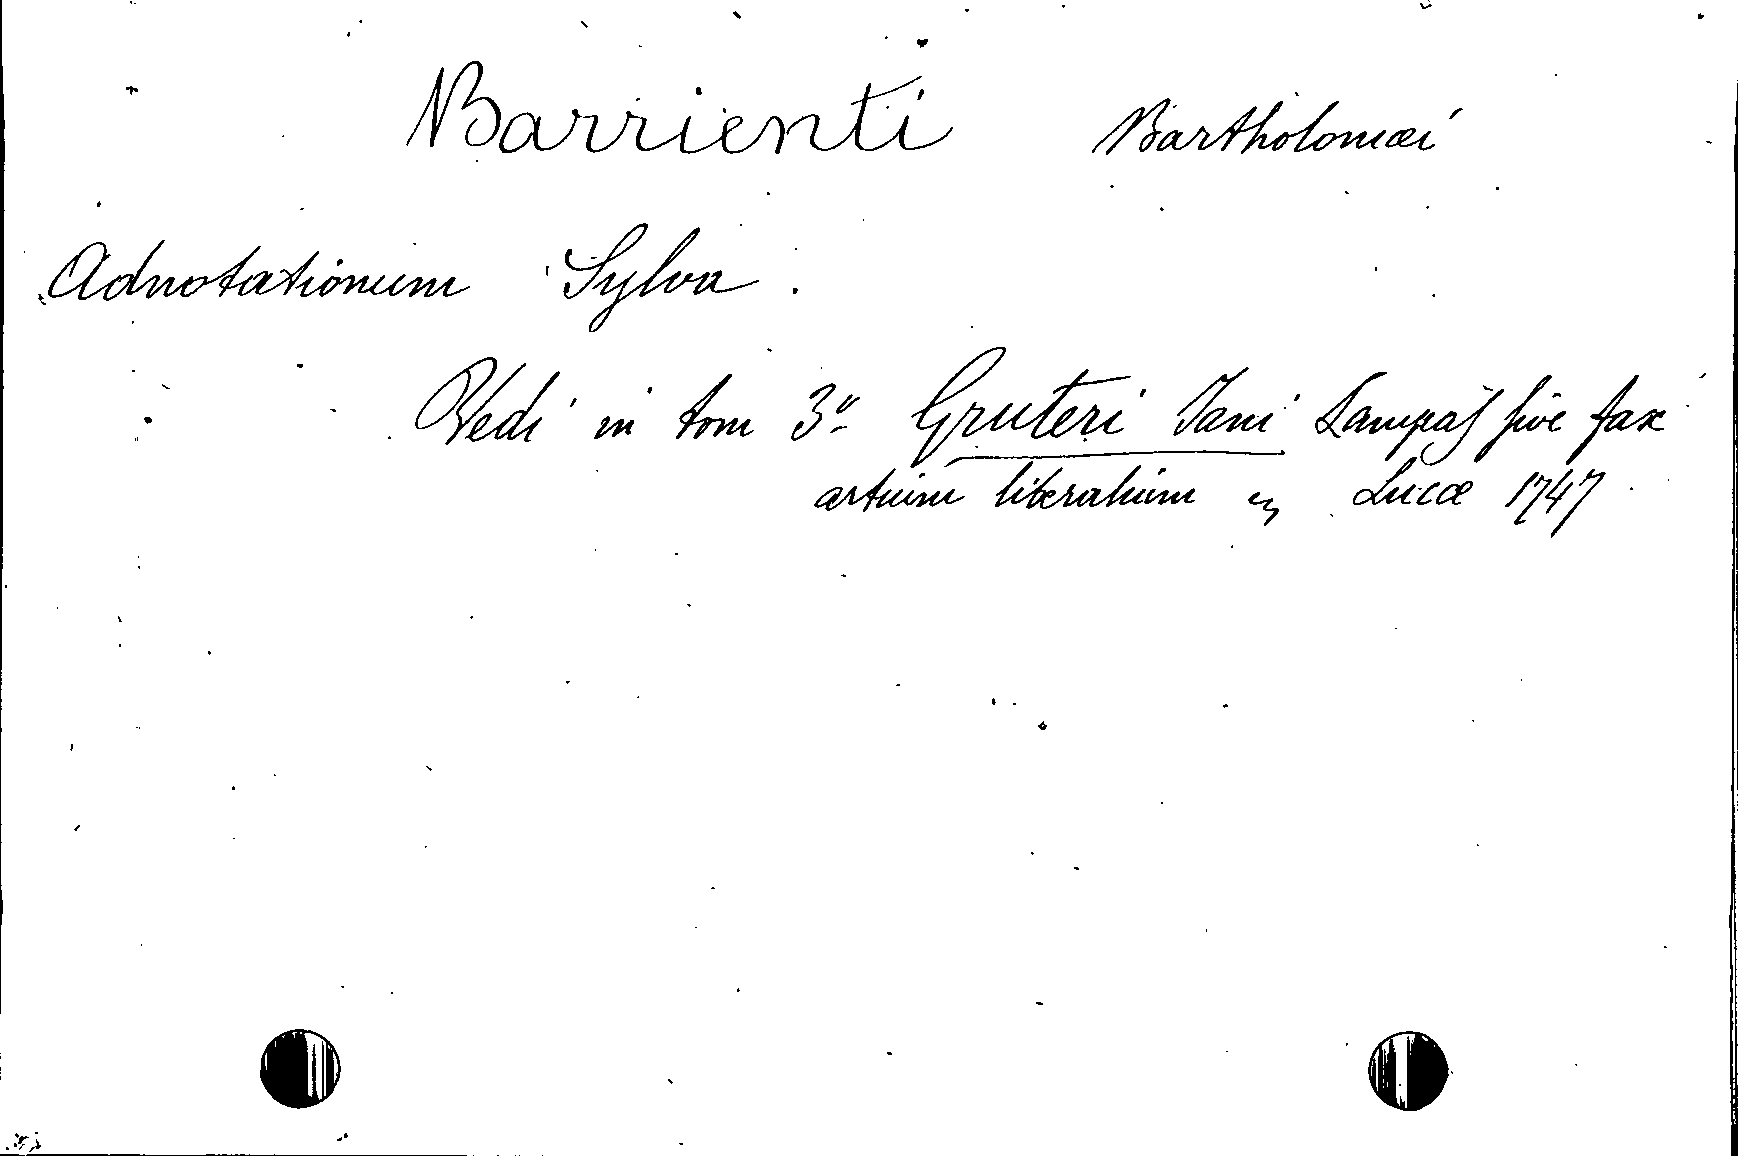 Barrienti Bartholomæi
Adnotationum Sylva.
Vedi in tom 3º Gruteri Jani Lampas sive fax
artium liberalium Lucæ 1747